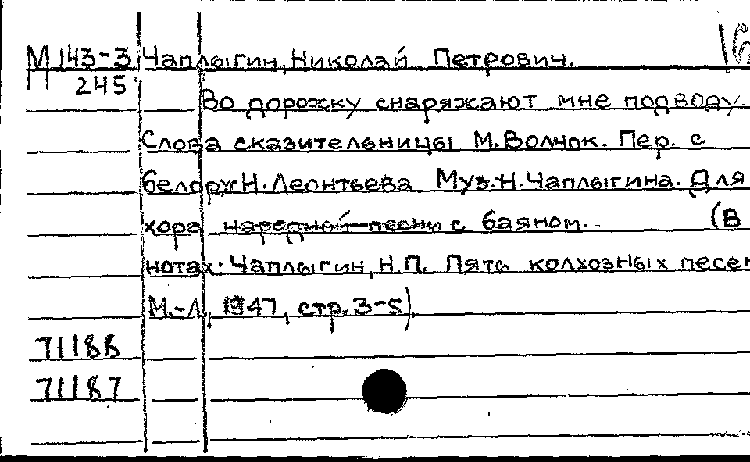 М 143-3 Чаплыгин, Николай Петрович. 16
245
Во дорожку снаряжают мне подводу.
Слова сказительницы М. Волчок. Пер. с
белорус Н. Леонтьева Муз. Н. Чаплыгина. Для
хора народной песни с баяном. (В
нотах: Чаплыгин, Н.П. Пять колхозных песен
М.-Л., 1947, стр. 3-5).
71188
71187